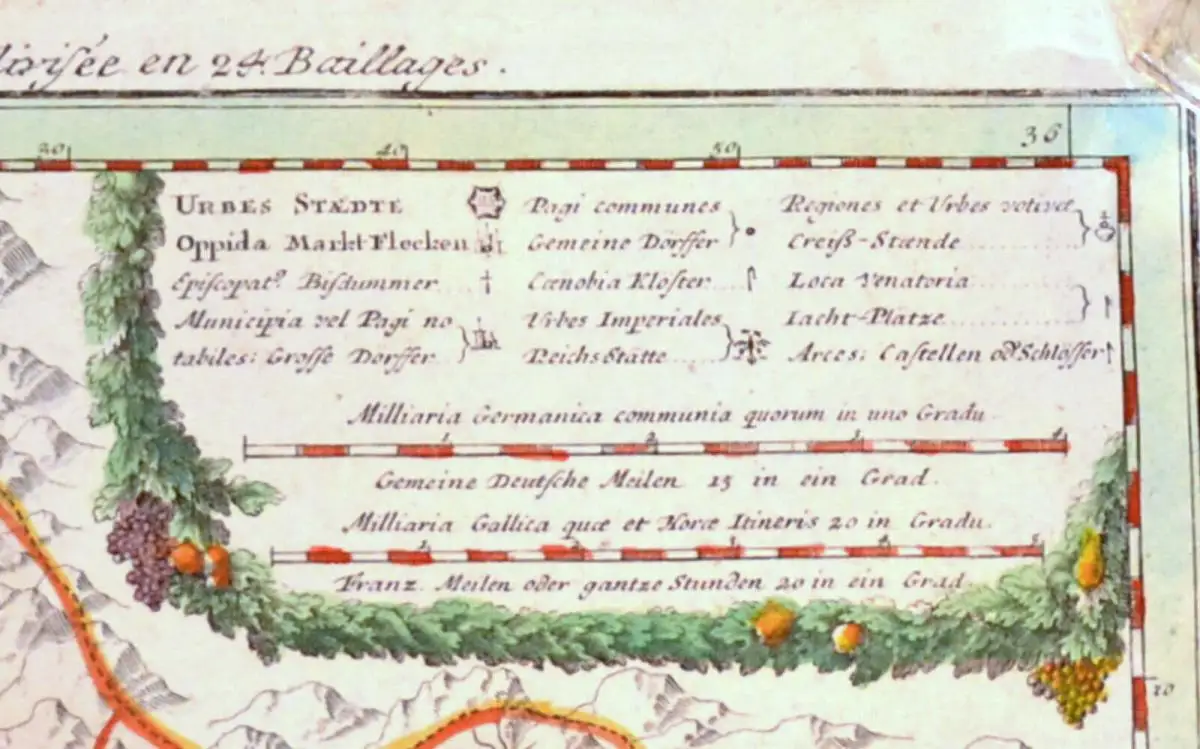 divisée en 24. Baillages.
30 40 50 36
URBES STÆDTE
Oppida Markt-Flecken
Episcopat9. Bisdummer
Municipia vel Pagi no
tabiles: Grosse Dorffer
Pagi communes
Gemeine Dörffer
Cœnobia Kloster
Urbes Imperiales
ReichsStätte
Regiones et Urbes votivæ
Creiß-Stænde
Loca Venatoria
Iacht-Plätze
Arces: Castellen od Schlösser
Milliaria Germanica communia quorum in uno Gradu
1 2 3 4
Gemeine Deutsche Meilen 15 in ein Grad.
Milliaria Gallica quæ et Horæ Itineris 20 in Gradu.
1 2 3 4 5
Franz. Meilen oder gantze Stunden 20 in ein Grad.
10